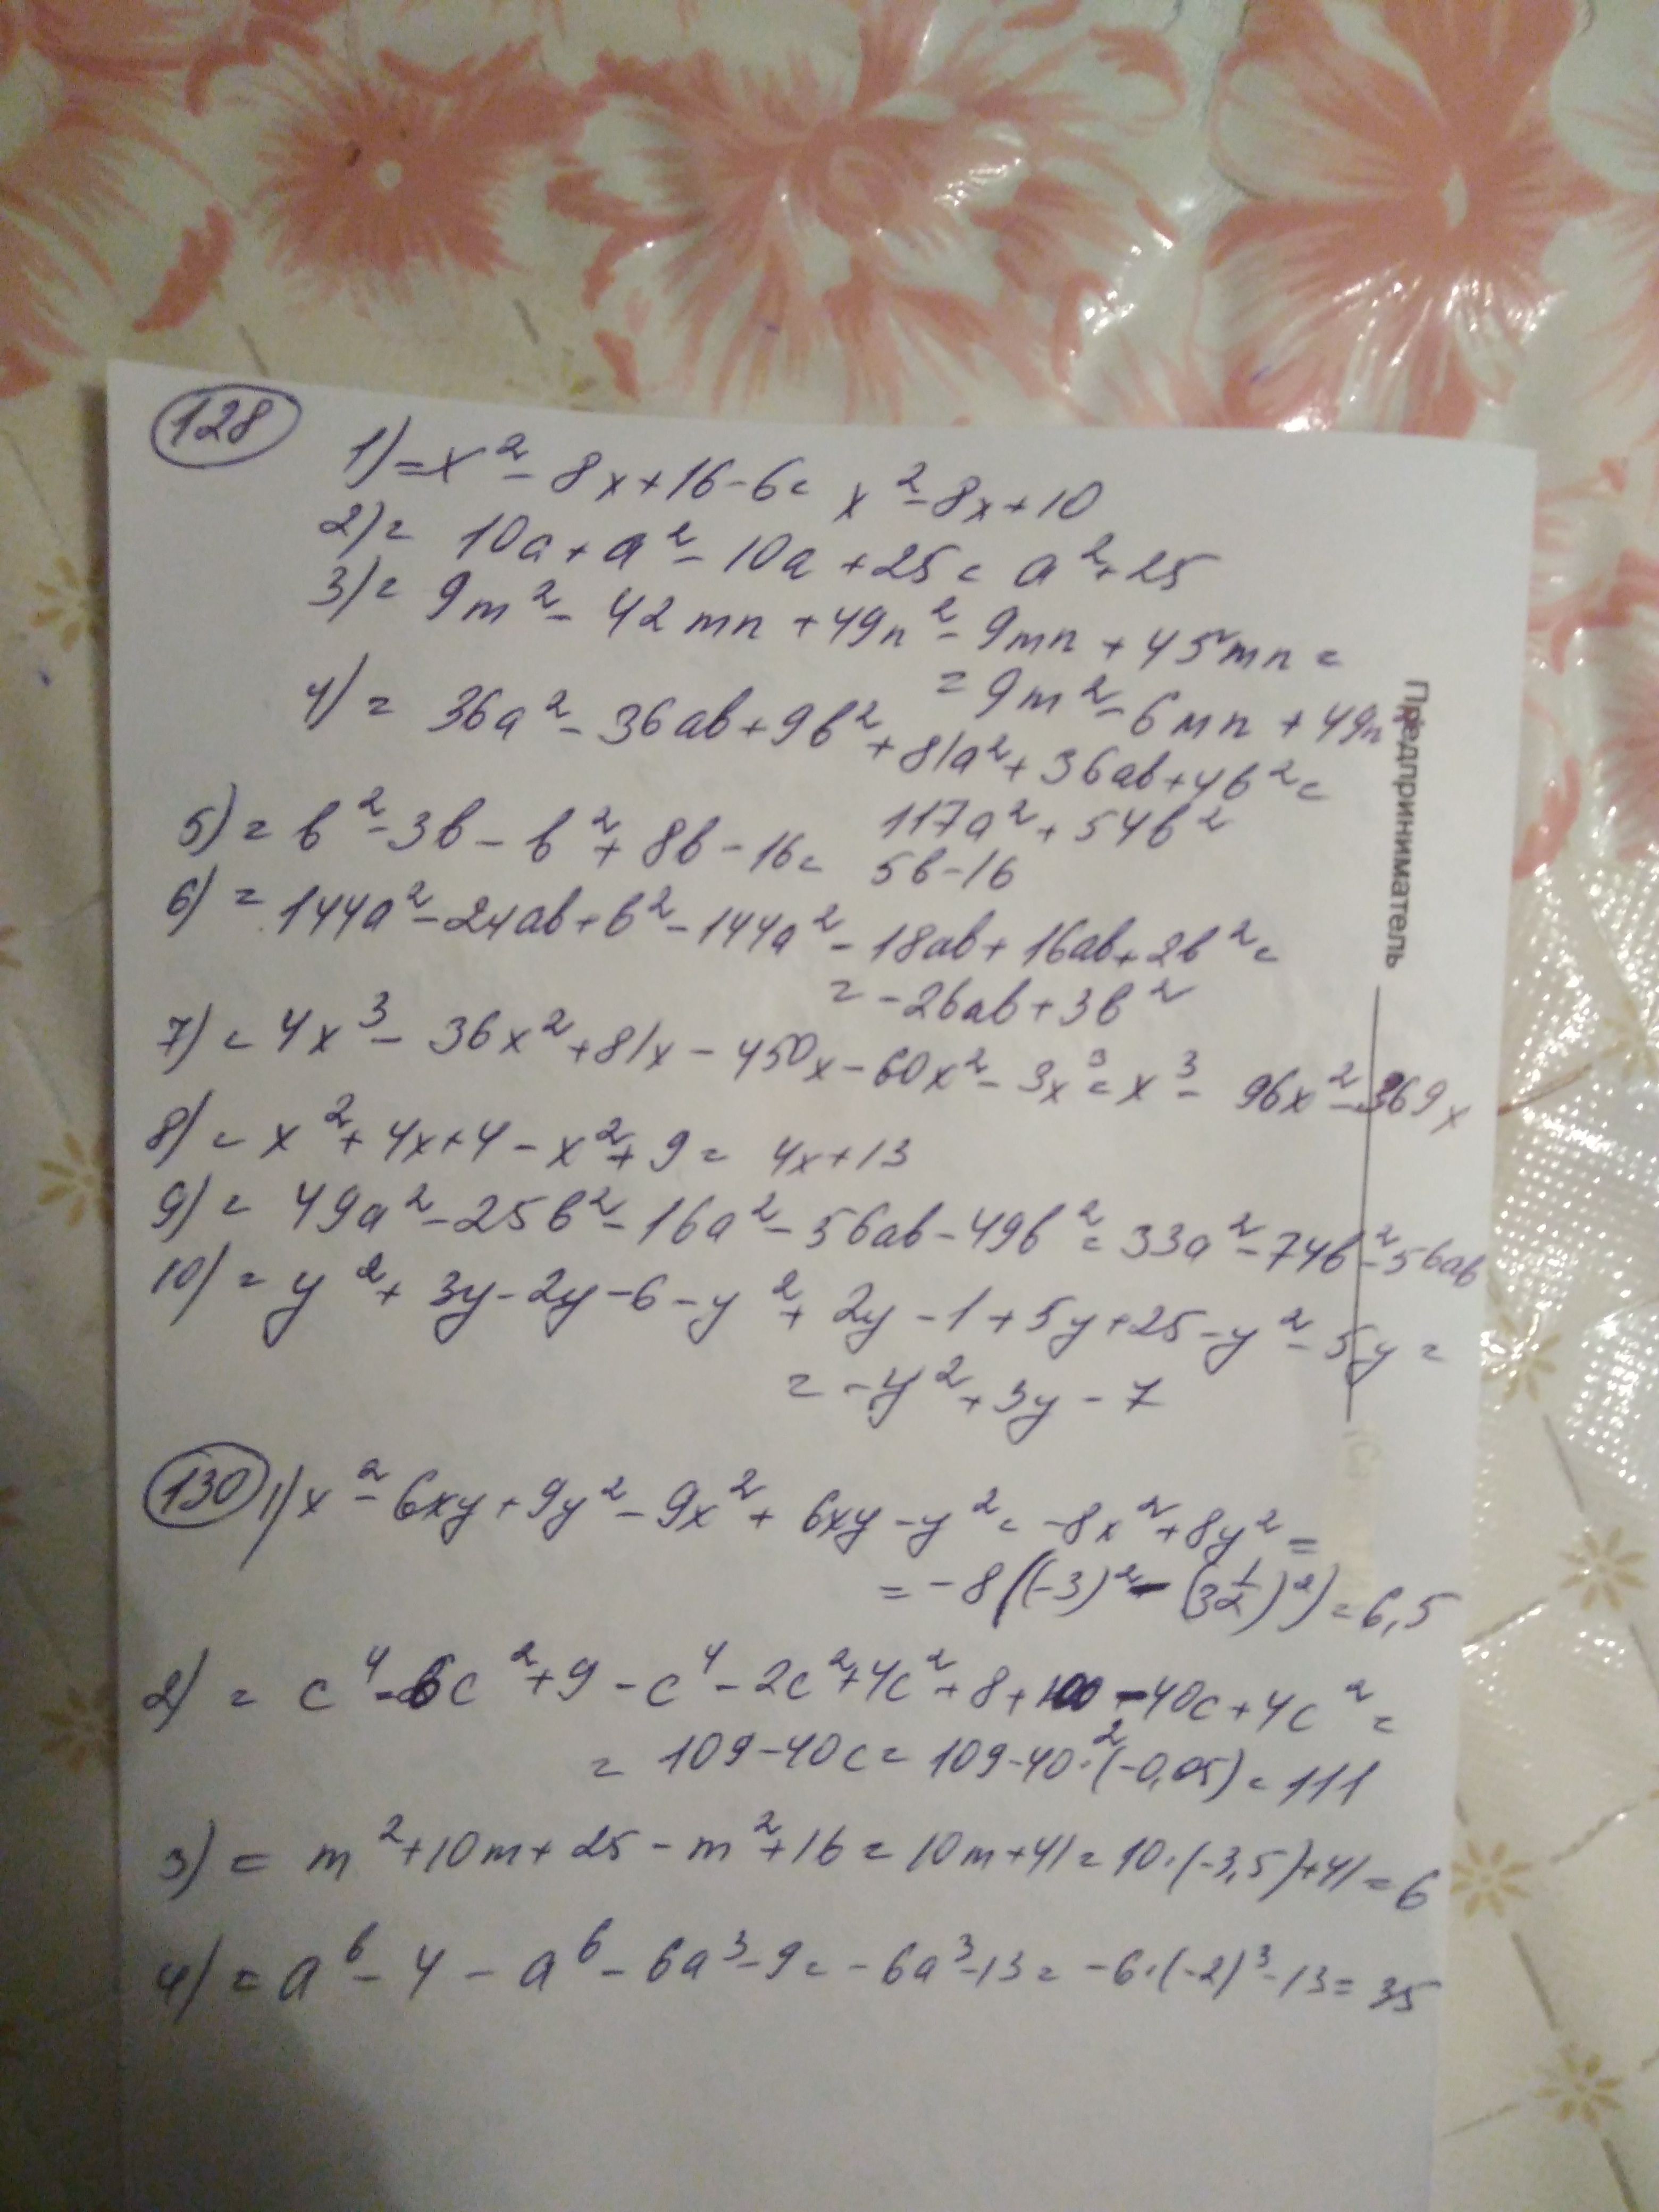 128
1) = x² - 8x + 16 - 6 = x² - 8x + 10
2) = 10a + a² - 10a + 25 = a² + 25
3) = 9m² - 42mn + 49n² - 9mn + 45mn =
= 9m² - 6mn + 49n²
4) = 36a² - 36ab + 9b² + 81a² + 36ab + 4b² =
117a² + 54b²
5) = b² - 3b - b² + 8b - 16 = 5b - 16
6) = 144a² - 24ab + b² - 144a² - 18ab + 16ab + 2b² =
= -26ab + 3b²
7) = 4x³ - 36x² + 81x - 450x - 60x² - 3x³ = x³ - 96x² - 369x
8) = x² + 4x + 4 - x² + 9 = 4x + 13
9) = 49a² - 25b² - 16a² - 56ab - 49b² = 33a² - 74b² - 56ab
10) = y² + 3y - 2y - 6 - y² + 2y - 1 + 5y + 25 - y² - 5y =
= -y² + 3y - 7
130 1) x² - 6xy + 9y² - 9x² + 6xy - y² = -8x² + 8y² =
= -8((-3)² - (3 1/2)²) = 6,5
2) = c⁴ - 6c² + 9 - c⁴ - 2c² + 4c² + 8 + 100 - 40c + 4c² =
= 109 - 40c = 109 - 40 · (-0,05)² = 111
3) = m² + 10m + 25 - m² + 16 = 10m + 41 = 10 · (-3,5) + 41 = 6
4) = a⁶ - 4 - a⁶ - 6a³ - 9 = -6a³ - 13 = -6 · (-2)³ - 13 = 35
Предприниматель